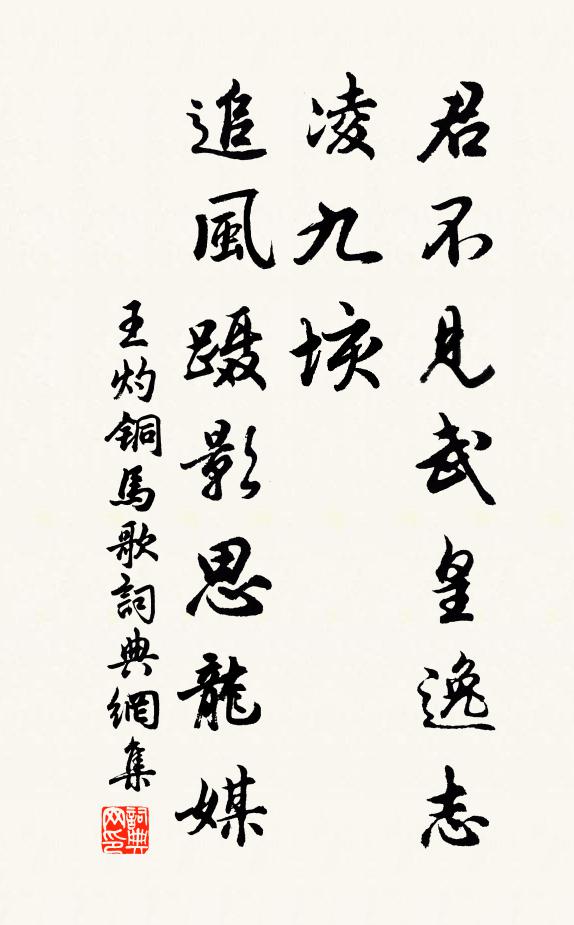 君不見武皇逸志
凌九垓
追風蹑影思龍媒
王灼銅馬歌詞典網集
詞典
网印